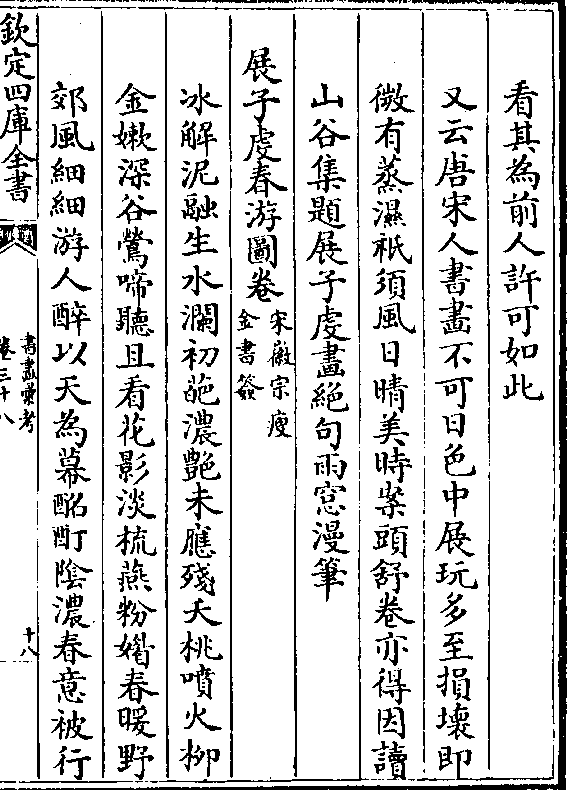 看其為前人許可如此
又云唐宋人書畫不可日色中展玩多至損壞即
微有蒸濕祇須風日晴美時案頭舒卷亦得因讀
山谷集題展子虔畫絕句雨窓漫筆
展子虔春游圖卷宋徽宗瘦金書簽
冰解泥融生水瀾初葩濃艷未應殘夭桃噴火柳
金嫩深谷鶯啼聽且看花影淡梳燕粉嫋春暖野
郊風細細游人醉以天為幕酩酊陰濃春意被行
欽定四庫全書
書畫彙考
卷三十八
十八